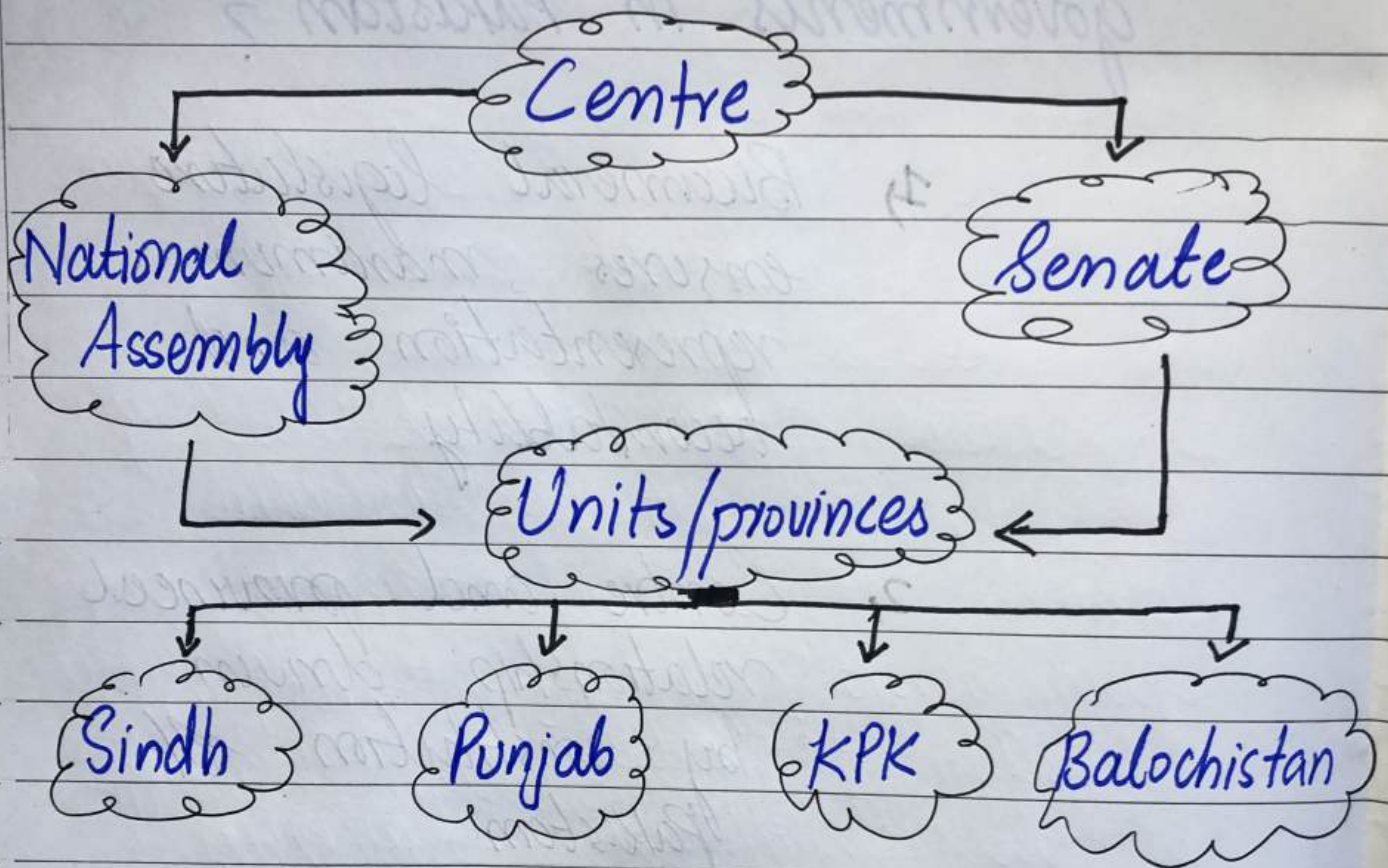 Centre
National
Assembly
Senate
Units/provinces
Sindh
Punjab
KPK
Balochistan